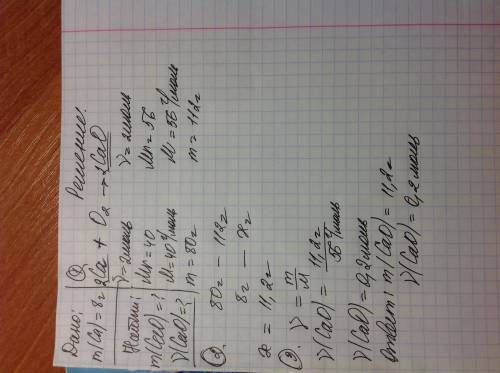 Дано:
m(Ca)=8г
Найти:
m(CaO)=?
ν(CaO)=?
Решение:
① 2Ca + O₂ → 2CaO
ν=2моль ν=2моль
Mr=40 Mr=56
M=40г/моль M=56г/моль
m=80г m=112г
②. 80г — 112г
8г — xг
x = 11,2г
③. ν = m/M
ν(CaO) = 11,2г/56г/моль
ν(CaO)=0,2моль
Ответ: m(CaO)=11,2г
ν(CaO)=0,2моль